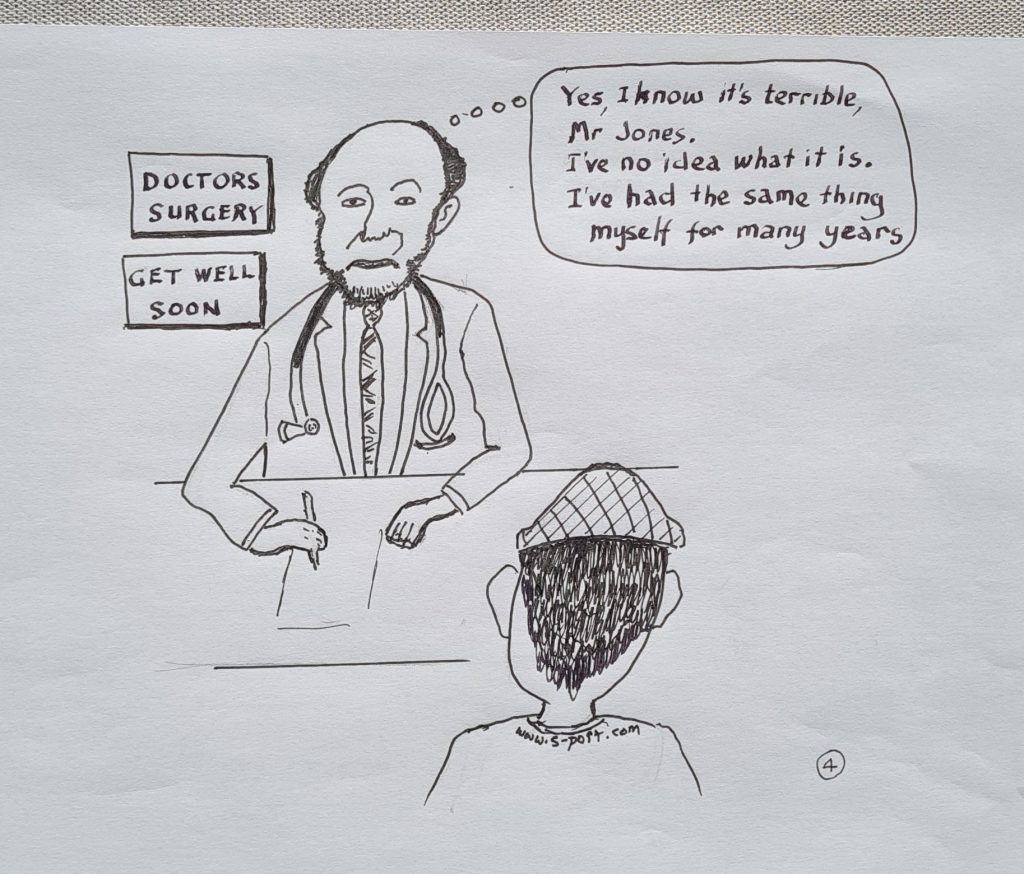 Yes, I know it's terrible,
Mr Jones.
I've no idea what it is.
I've had the same thing
myself for many years
DOCTORS
SURGERY
GET WELL
SOON
www.s-port.com
4